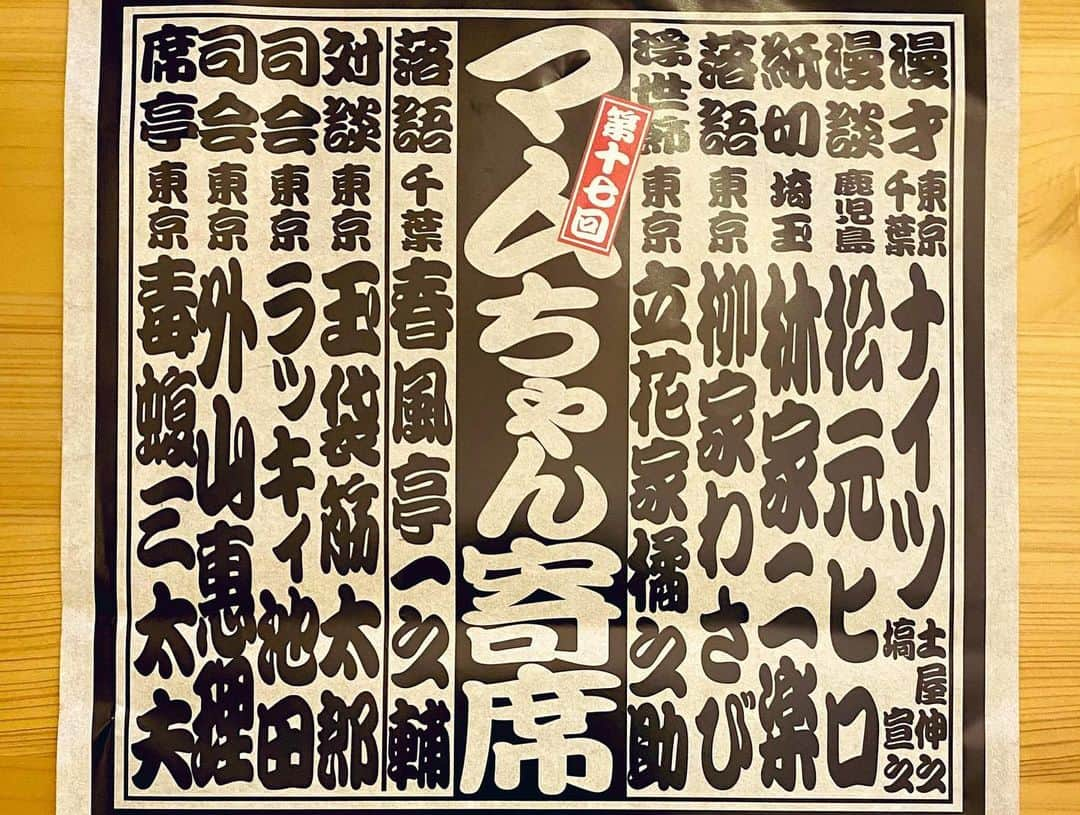 漫才 東京 千葉 ナイツ 土屋伸之 塙宣之
漫談 鹿児島 松元ヒロ
紙切 埼玉 林家二楽
落語 東京 柳家わさび
浮世節 東京 立花家橘之助
第十七回
マムちゃん寄席
落語 千葉 春風亭一之輔
対談 東京 玉袋筋太郎
司会 東京 ラッキィ池田
司会 東京 外山惠理
席亭 東京 毒蝮三太夫